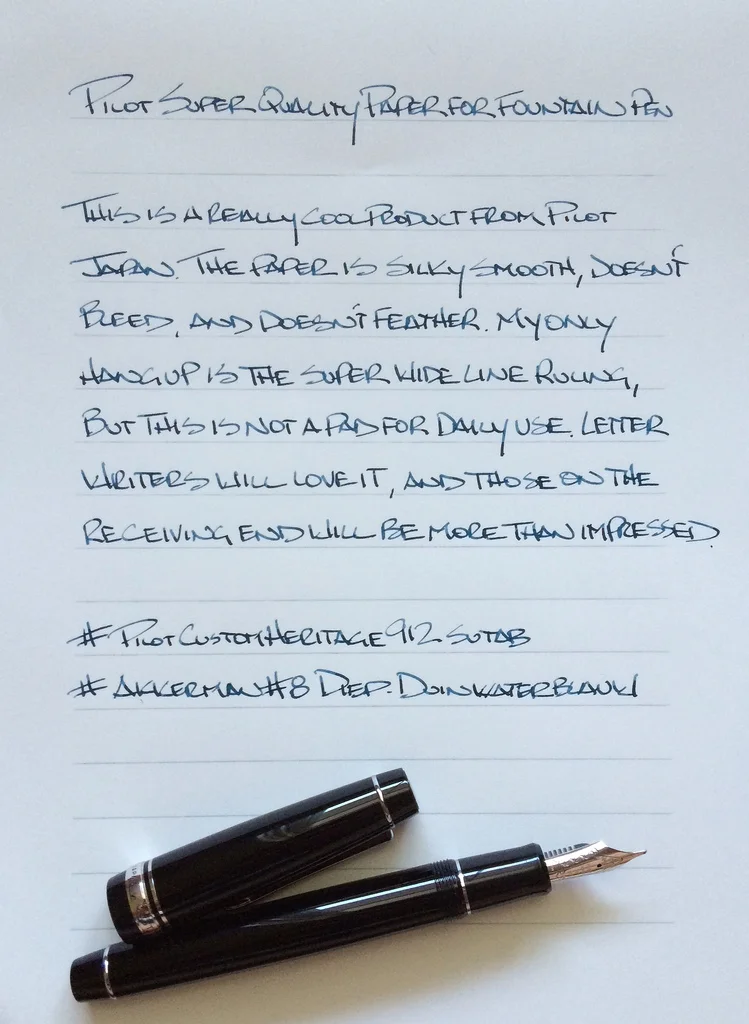 Pilot Super Quality Paper for Fountain Pen
This is a really cool product from Pilot
Japan. The paper is silky smooth, doesn't
bleed, and doesn't feather. My only
hangup is the super wide line ruling,
but this is not a pad for daily use. Letter
writers will love it, and those on the
receiving end will be more than impressed.
# Pilot Custom Heritage 912 SUTAB
# Akkerman #8 Diep-Duinwaterblauw